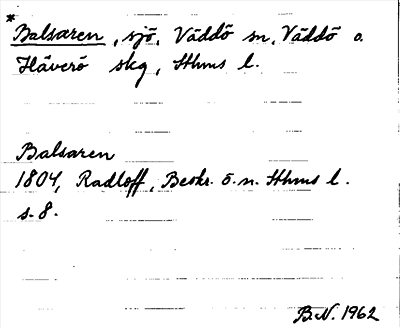 *
Balsaren, sjö, Väddö sn, Väddö o.
Häverö skg, Sthms l.
Balsaren
1804, Radloff, Beskr. ö. n. Sthms l.
s. 8.
B.N. 1962